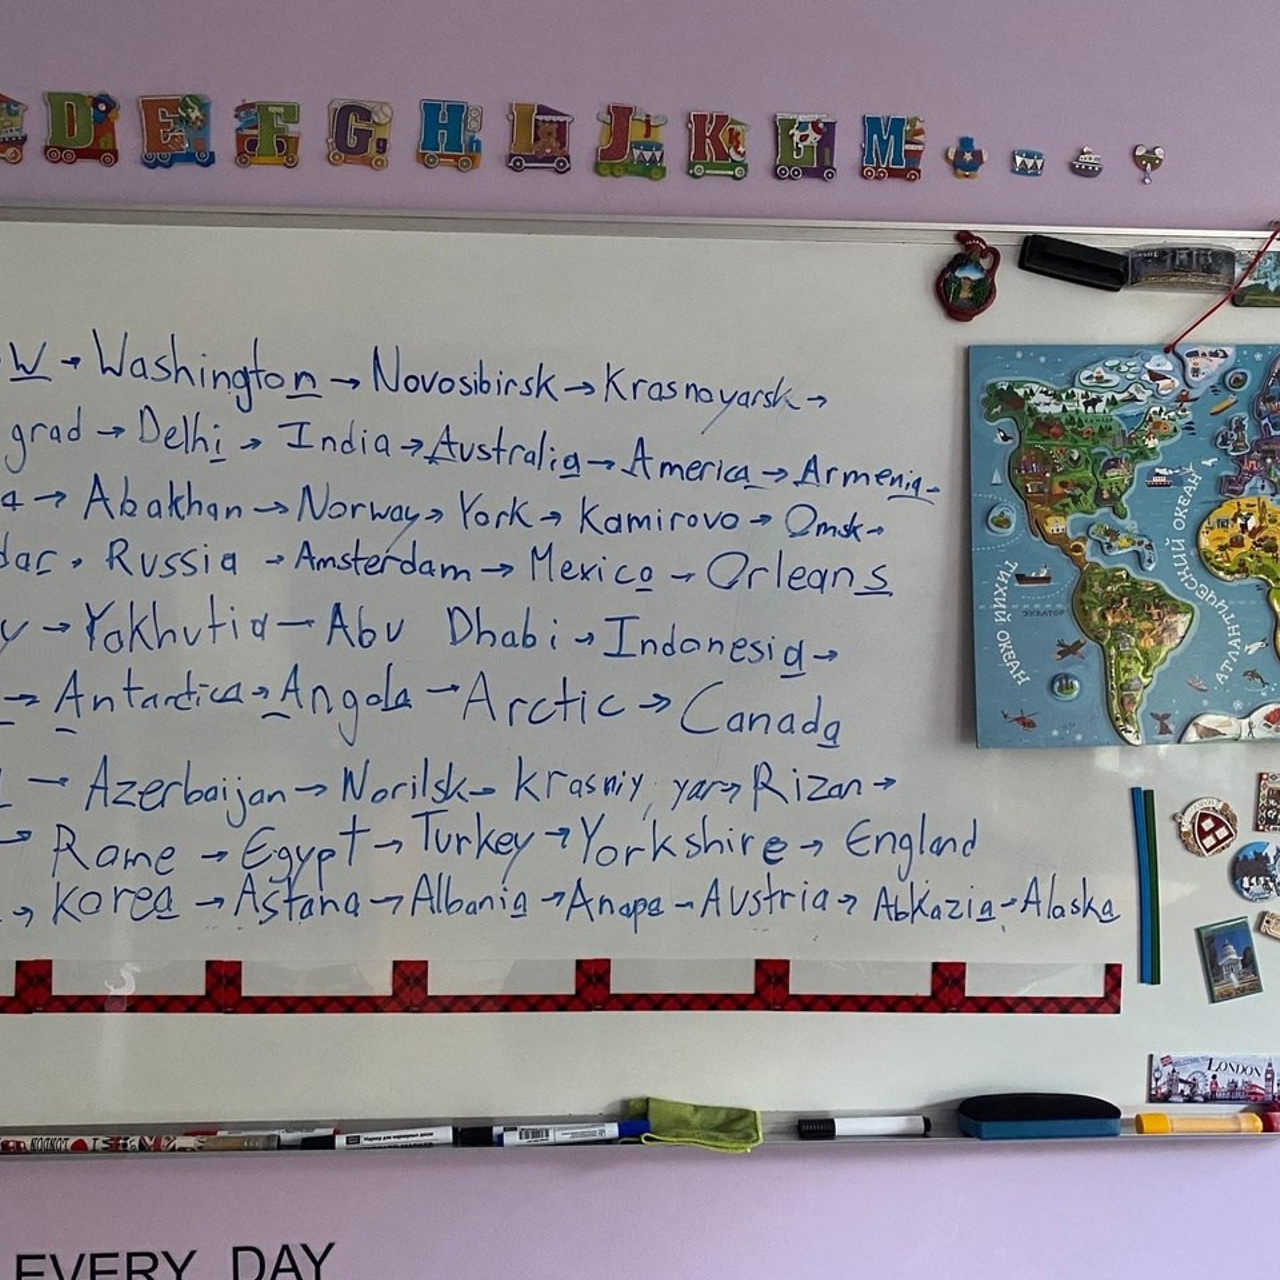 D E F G H I J K L M
w → Washington → Novosibirsk → Krasnoyarsk →
grad → Delhi → India → Australia → America → Armenia →
a → Abakhan → Norway → York → Kamirovo → Omsk →
dar → Russia → Amsterdam → Mexico → Orleans
y → Yakhutia → Abu Dhabi → Indonesia →
→ Antarctica → Angola → Arctic → Canada
→ Azerbaijan → Norilsk → Krasniy yar → Rizan →
→ Rome → Egypt → Turkey → Yorkshire → England
→ Korea → Astana → Albania → Anapa → Austria → Abkazia → Alaska
ТИХИЙ ОКЕАН
АТЛАНТИЧЕСКИЙ ОКЕАН
ЭКВАТОР
LONDON
LONDON
EVERY DAY